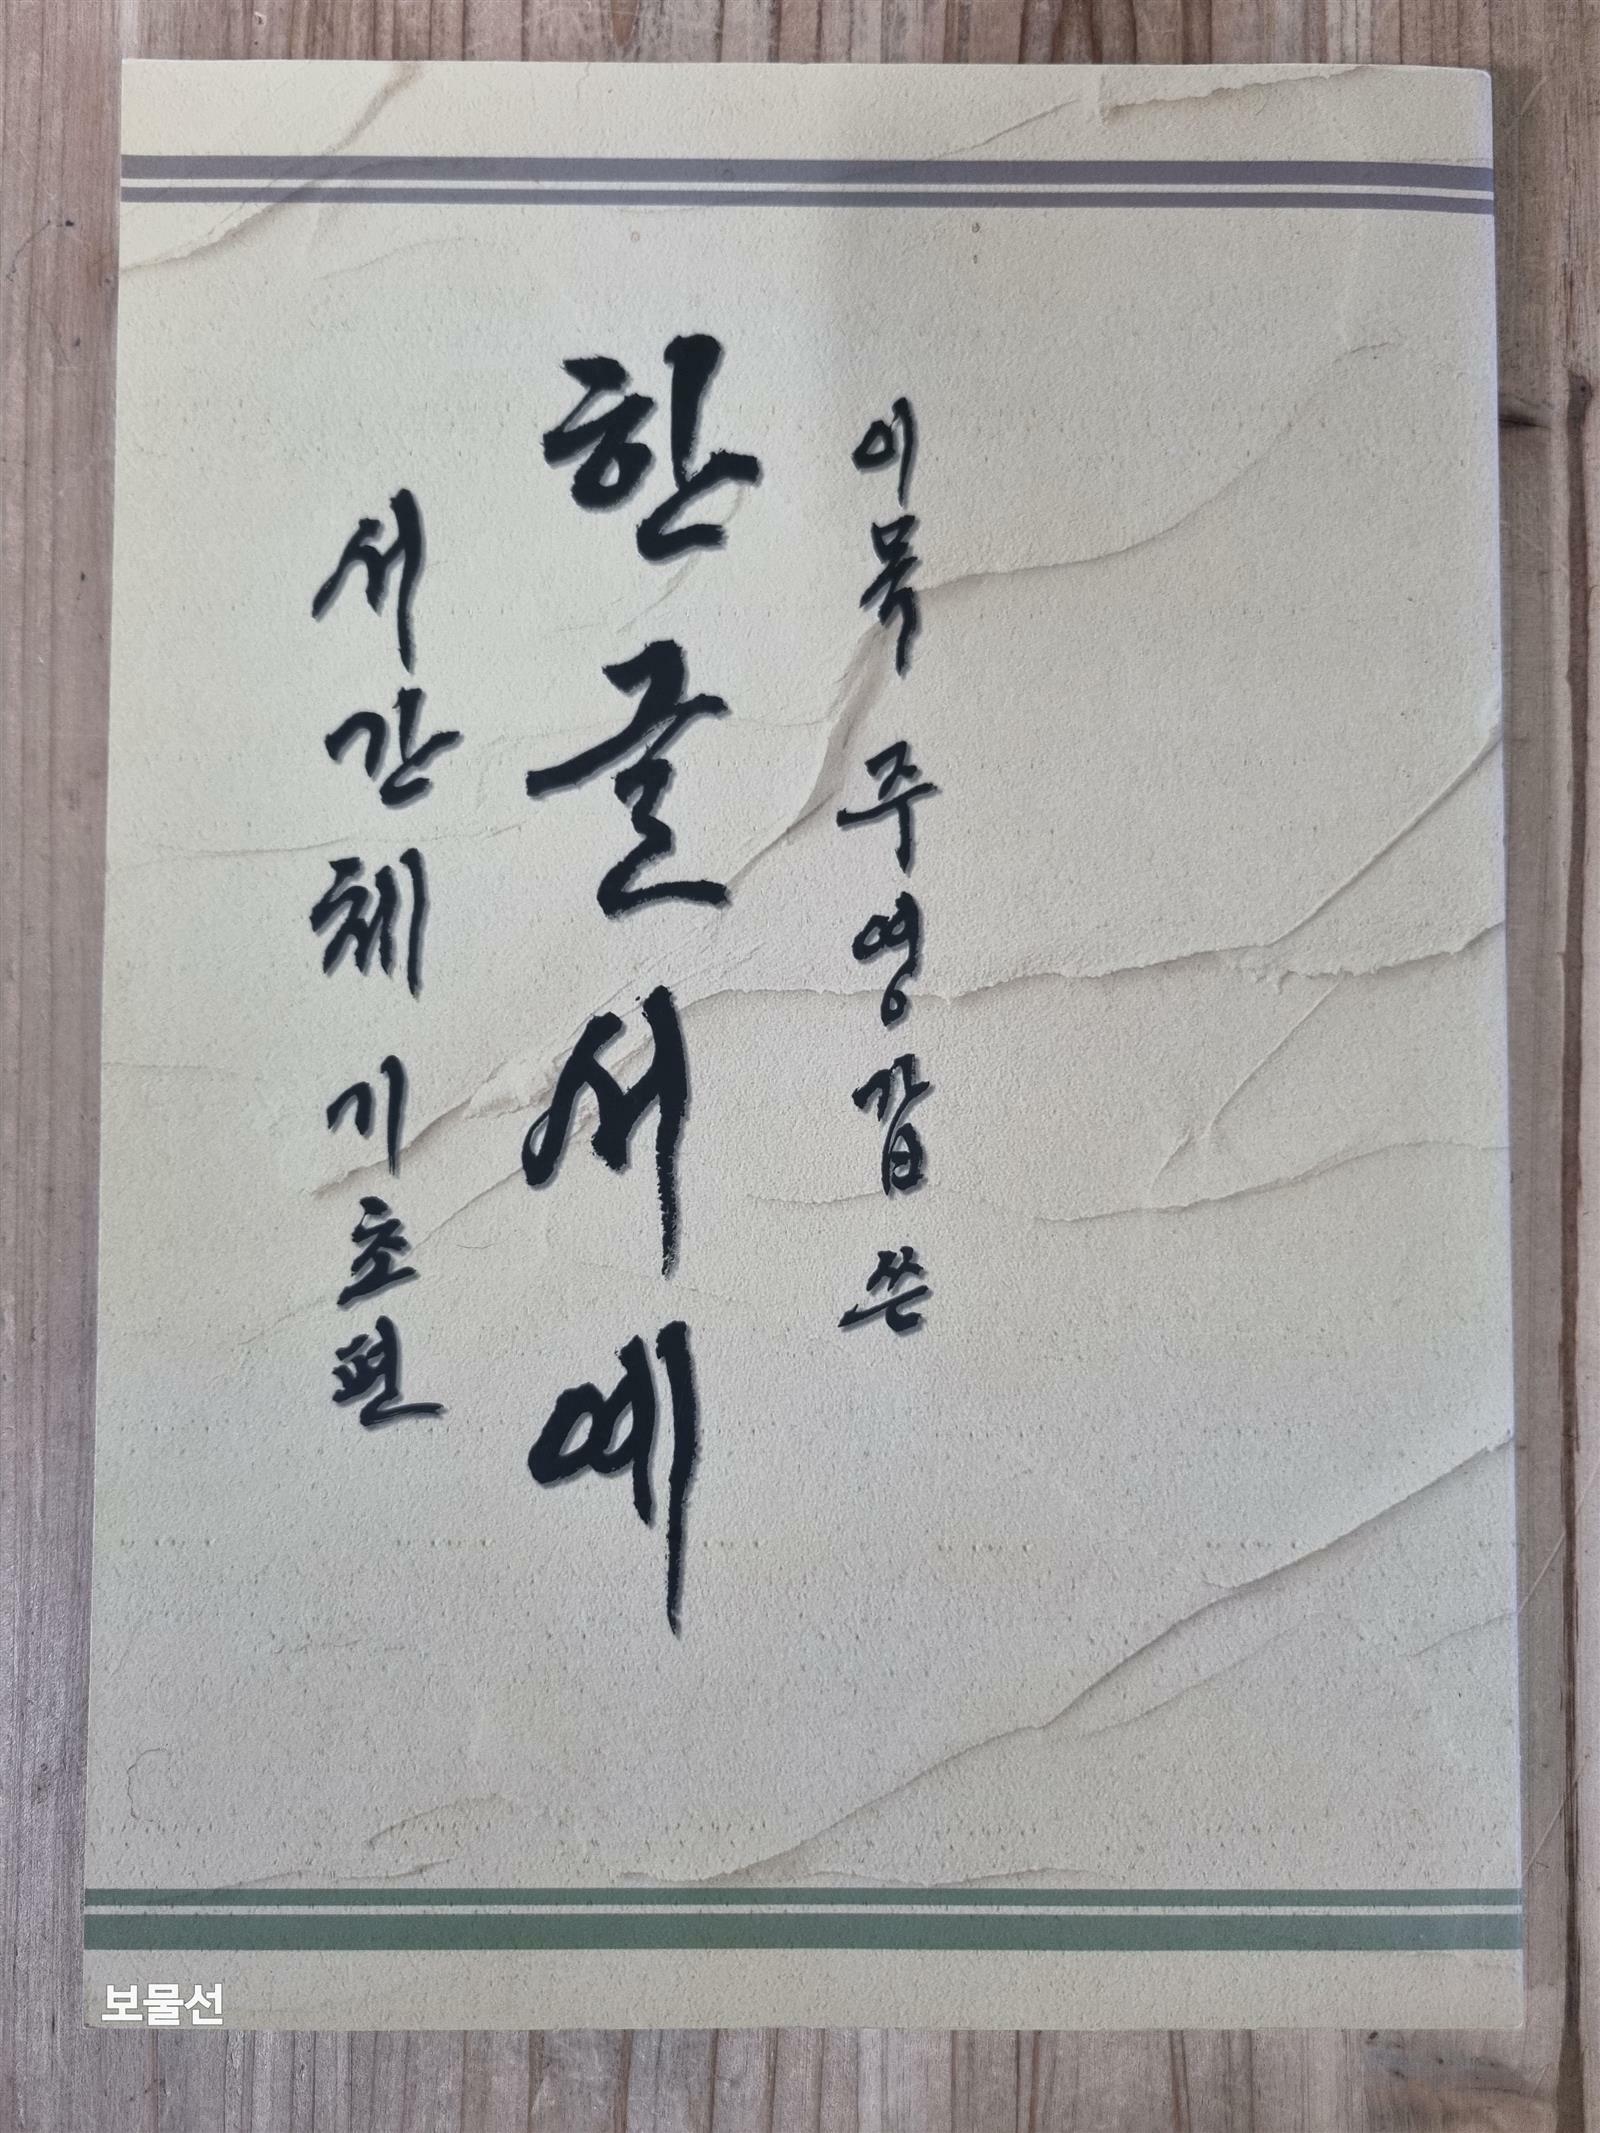 이목 주영갑 쓴
한글서예
서간체 기초편
보물선